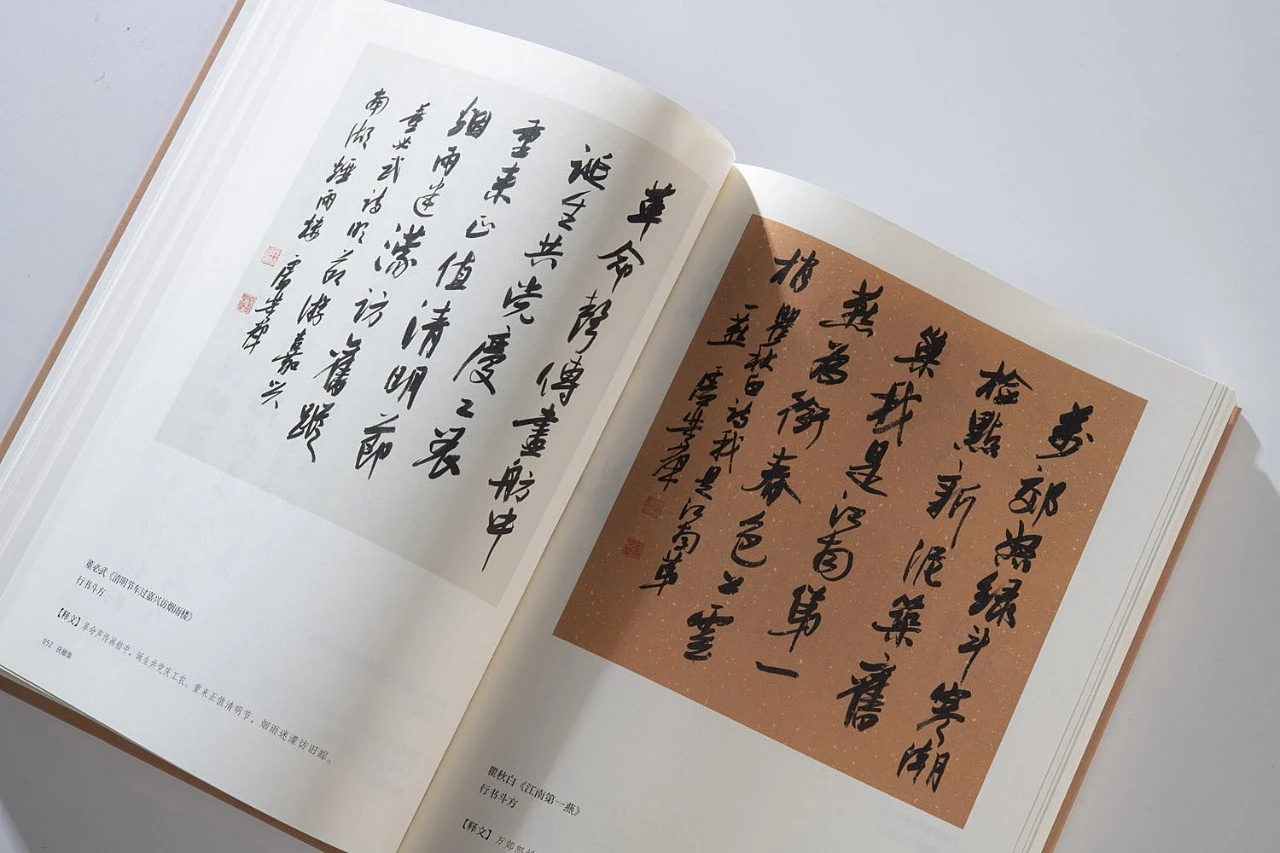 革命聲傳畫舫中
誕生共党慶工农
重来正值清明節
烟雨迷濛访舊蹤
董必武诗明前游嘉兴
南湖烟雨楼
董必武《清明节车过嘉兴访烟雨楼》
行书斗方
【释文】革命声传画舫中，诞生共党庆工农。重来正值清明节，烟雨迷濛访旧踪。
052
萬郊怒绿斗寒潮
检點新泥築舊
巢我是江南第一
燕為衔春色上雲
梢 瞿秋白诗我是江南第
一燕
瞿秋白《江南第一燕》
行书斗方
【释文】万郊怒